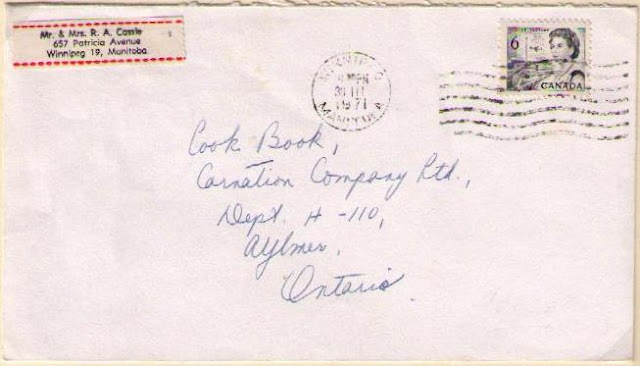 Mr. & Mrs. R. A. Cassie
657 Patricia Avenue
Winnipeg 19, Manitoba
WINNIPEG
PM
31 III
1971
MANITOBA
6
CANADA
Cook Book,
Carnation Company Ltd.,
Dept. H-110,
Aylmer,
Ontario.